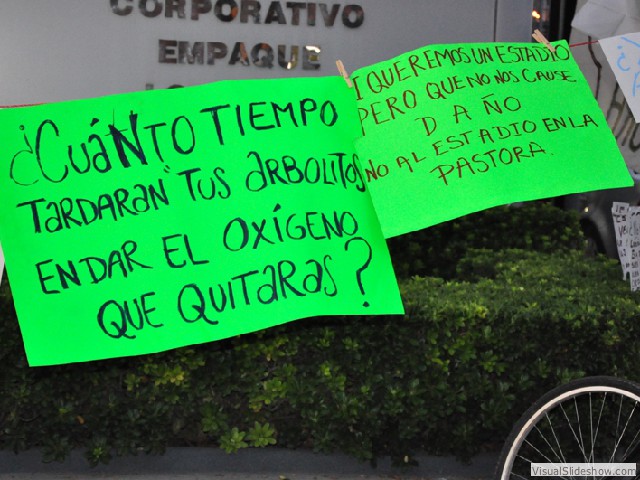 CORPORATIVO
EMPAQUE
¿CUÁNTO TIEMPO
TARDARAN TUS ARBOLITOS
EN DAR EL OXÍGENO
QUE QUITARAS?
QUEREMOS UN ESTADIO
PERO QUE NO NOS CAUSE
DAÑO
NO AL ESTADIO EN LA
PASTORA.
VisualSlideshow.com